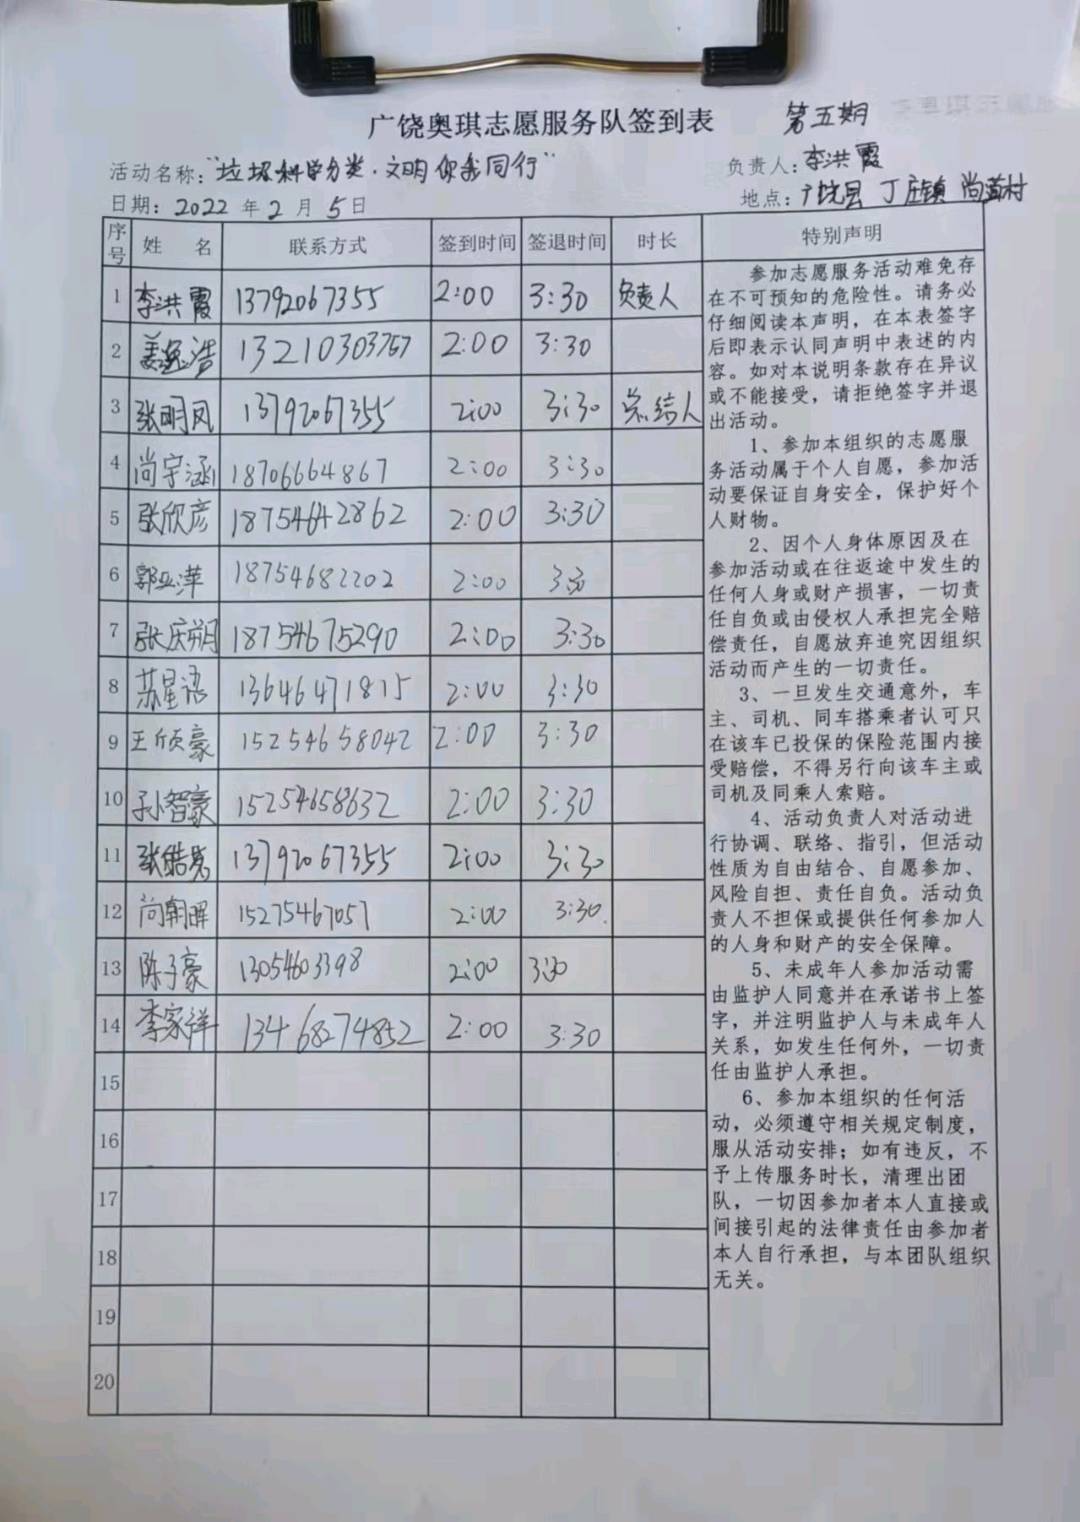 广饶奥琪志愿服务队签到表 第五期
活动名称:"垃圾科学分类·文明你我同行" 负责人:李洪霞
日期:2022年2月5日 地点:广饶县 丁庄镇 尚道村
序号 姓 名 联系方式 签到时间 签退时间 时长 特别声明
1 李洪霞 13792067355 2:00 3:30 负责人
2 姜逸浩 13210303767 2:00 3:30
3 张明凤 13792067355 2:00 3:30 总结人
4 尚宇涵 18706664867 2:00 3:30
5 张欣彦 18754642862 2:00 3:30
6 郭亚萍 18754682202 2:00 3:30
7 张庆朔 18754675290 2:00 3:30
8 苏星语 13646471815 2:00 3:30
9 王颀豪 15254658042 2:00 3:30
10 孙智豪 15254658632 2:00 3:30
11 张皓 13792067355 2:00 3:30
12 尚朝晖 15275467057 2:00 3:30
13 陈子豪 13054603398 2:00 3:30
14 李家祥 13468274852 2:00 3:30
15
16
17
18
19
20
参加志愿服务活动难免存
在不可预知的危险性。请务必
仔细阅读本声明,在本表签字
后即表示认同声明中表述的内
容。如对本说明条款存在异议
或不能接受,请拒绝签字并退
出活动。
1、参加本组织的志愿服
务活动属于个人自愿,参加活
动要保证自身安全,保护好个
人财物。
2、因个人身体原因及在
参加活动或在往返途中发生的
任何人身或财产损害,一切责
任自负或由侵权人承担完全赔
偿责任,自愿放弃追究因组织
活动而产生的一切责任。
3、一旦发生交通意外,车
主、司机、同车搭乘者认可只
在该车已投保的保险范围内接
受赔偿,不得另行向该车主或
司机及同乘人索赔。
4、活动负责人对活动进
行协调、联络、指引,但活动
性质为自由结合、自愿参加、
风险自担、责任自负。活动负
责人不担保或提供任何参加人
的人身和财产的安全保障。
5、未成年人参加活动需
由监护人同意并在承诺书上签
字,并注明监护人与未成年人
关系,如发生任何外,一切责
任由监护人承担。
6、参加本组织的任何活
动,必须遵守相关规定制度,
服从活动安排;如有违反,不
予上传服务时长,清理出团
队,一切因参加者本人直接或
间接引起的法律责任由参加者
本人自行承担,与本团队组织
无关。